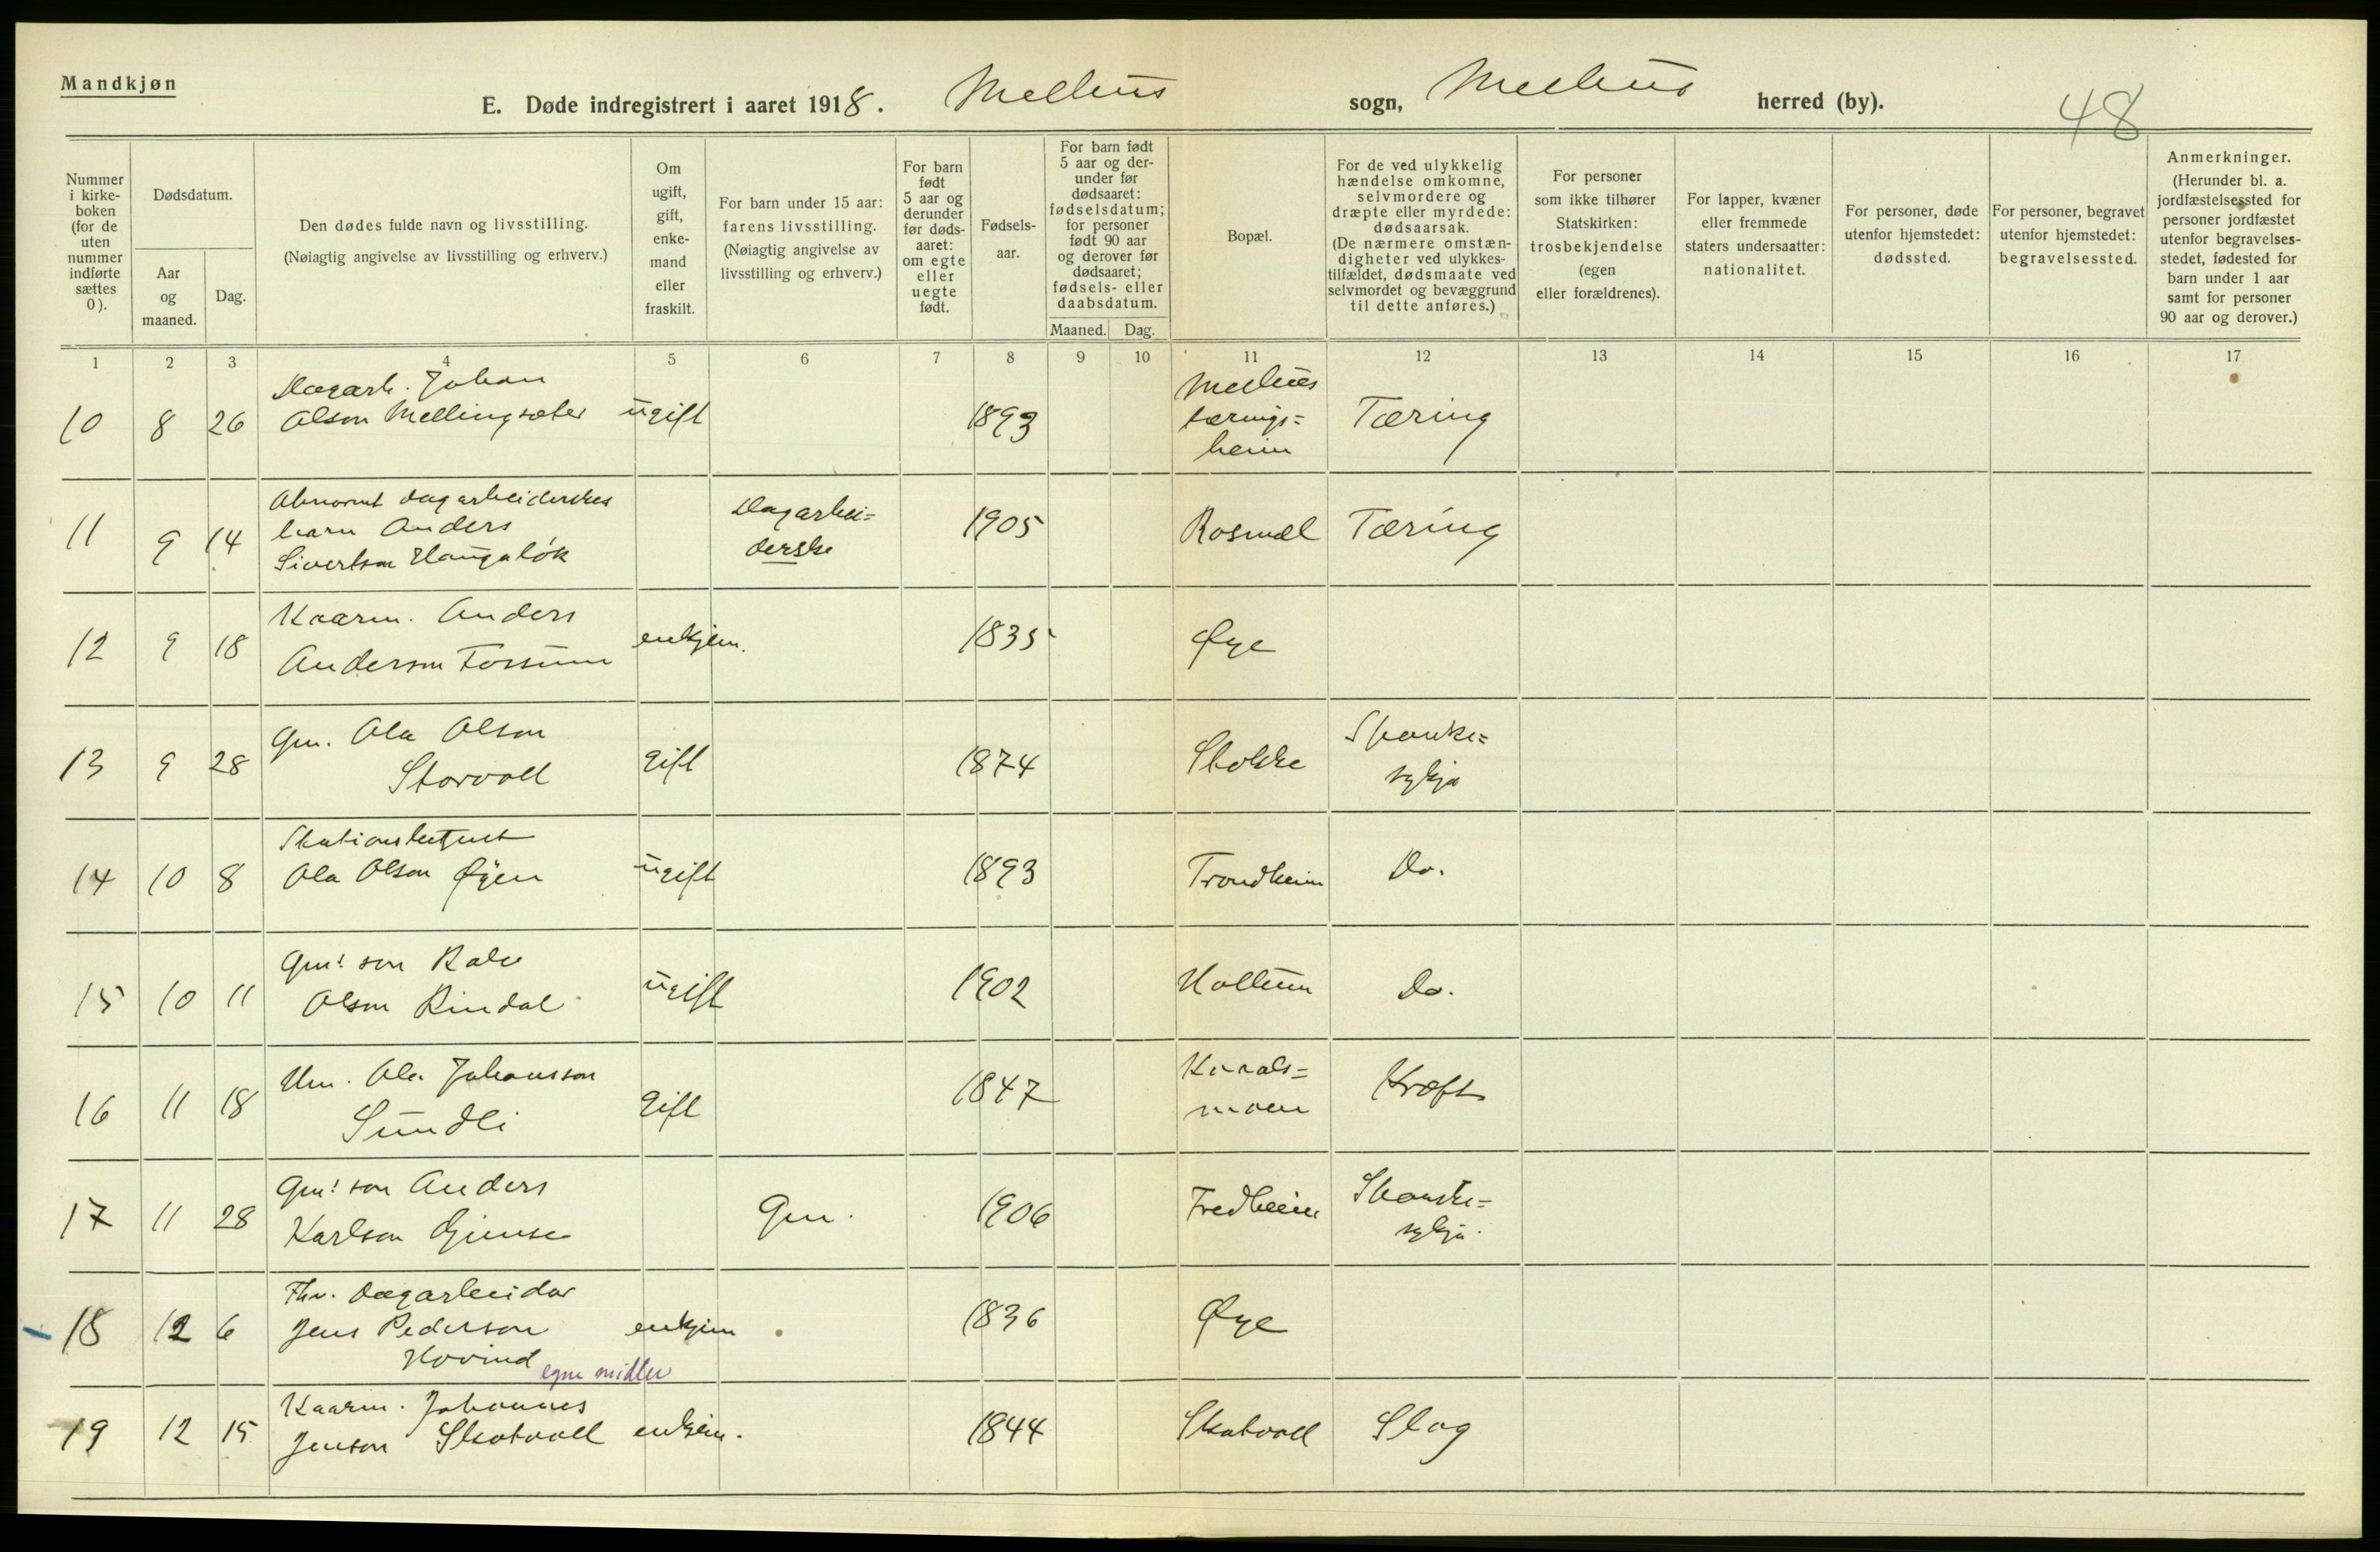 Mandkjøn
E. Døde indregistrert i aaret 1918. Melhus sogn, Melhus herred (by).
48
Nummer i kirke-boken (for de uten nummer indførte sættes 0).
Dødsdatum.
Aar og maaned.
Dag.
Den dødes fulde navn og livsstilling.
(Nøiagtig angivelse av livsstilling og erhverv.)
Om ugift, gift, enke-mand eller fraskilt.
For barn under 15 aar: farens livsstilling.
(Nøiagtig angivelse av livsstilling og erhverv.)
For barn født 5 aar og derunder før døds-aaret: om egte eller uegte født.
Fødsels-aar.
For barn født 5 aar og der-under før dødsaaret: fødselsdatum; for personer født 90 aar og derover før dødsaaret; fødsels- eller daabsdatum.
Maaned. Dag.
Bopæl.
For de ved ulykkelig hændelse omkomne, selvmordere og dræpte eller myrdede: dødsaarsak.
(De nærmere omstæn-digheter ved ulykkes-tilfældet, dødsmaate ved selvmordet og bevæggrund til dette anføres.)
For personer som ikke tilhører Statskirken: trosbekjendelse (egen eller forældrenes).
For lapper, kvæner eller fremmede staters undersaatter: nationalitet.
For personer, døde utenfor hjemstedet: dødssted.
For personer, begravet utenfor hjemstedet: begravelsessted.
Anmerkninger.
(Herunder bl. a. jordfæstelsessted for personer jordfæstet utenfor begravelses-stedet, fødested for barn under 1 aar samt for personer 90 aar og derover.)
1 2 3 4 5 6 7 8 9 10 11 12 13 14 15 16 17
10 8 26 Dagarb. Johan
Olson Mellingsæter ugift 1893 Melhus
tærings=
heim Tæring
11 9 14 Abnormt dagarbeiderskes
barn Anders
Sivertson Haugaløk Dagarbei=
derske 1905 Rosmæl Tæring
12 9 18 Kaarm. Anders
Anderson Fossum enkjem. 1835 Øye
13 9 28 Gm. Ola Olson
Storvoll gift 1874 Stokke Spanske=
sykja
14 10 8 Stationsbetjent
Ola Olson Øyen ugift 1893 Trondheim Do.
15 10 11 Gm! son
Olson Rindal ugift 1902 Hollum Do.
16 11 18 Hm. Ola Johansson
Sundli gift 1847 Kvaals=
moen Kræft
17 11 28 Gm! son Anders
Karlson Gimse Gm. 1906 Fredheim Spanske=
sykja.
18 12 6 Fhv. Dagarbeidar
Jens Pederson
Hovind enkjem 1836 Øye
egne midler
19 12 15 Kaarm. Johannes
Jenson Skotvoll enkjem. 1844 Skotvoll Slag